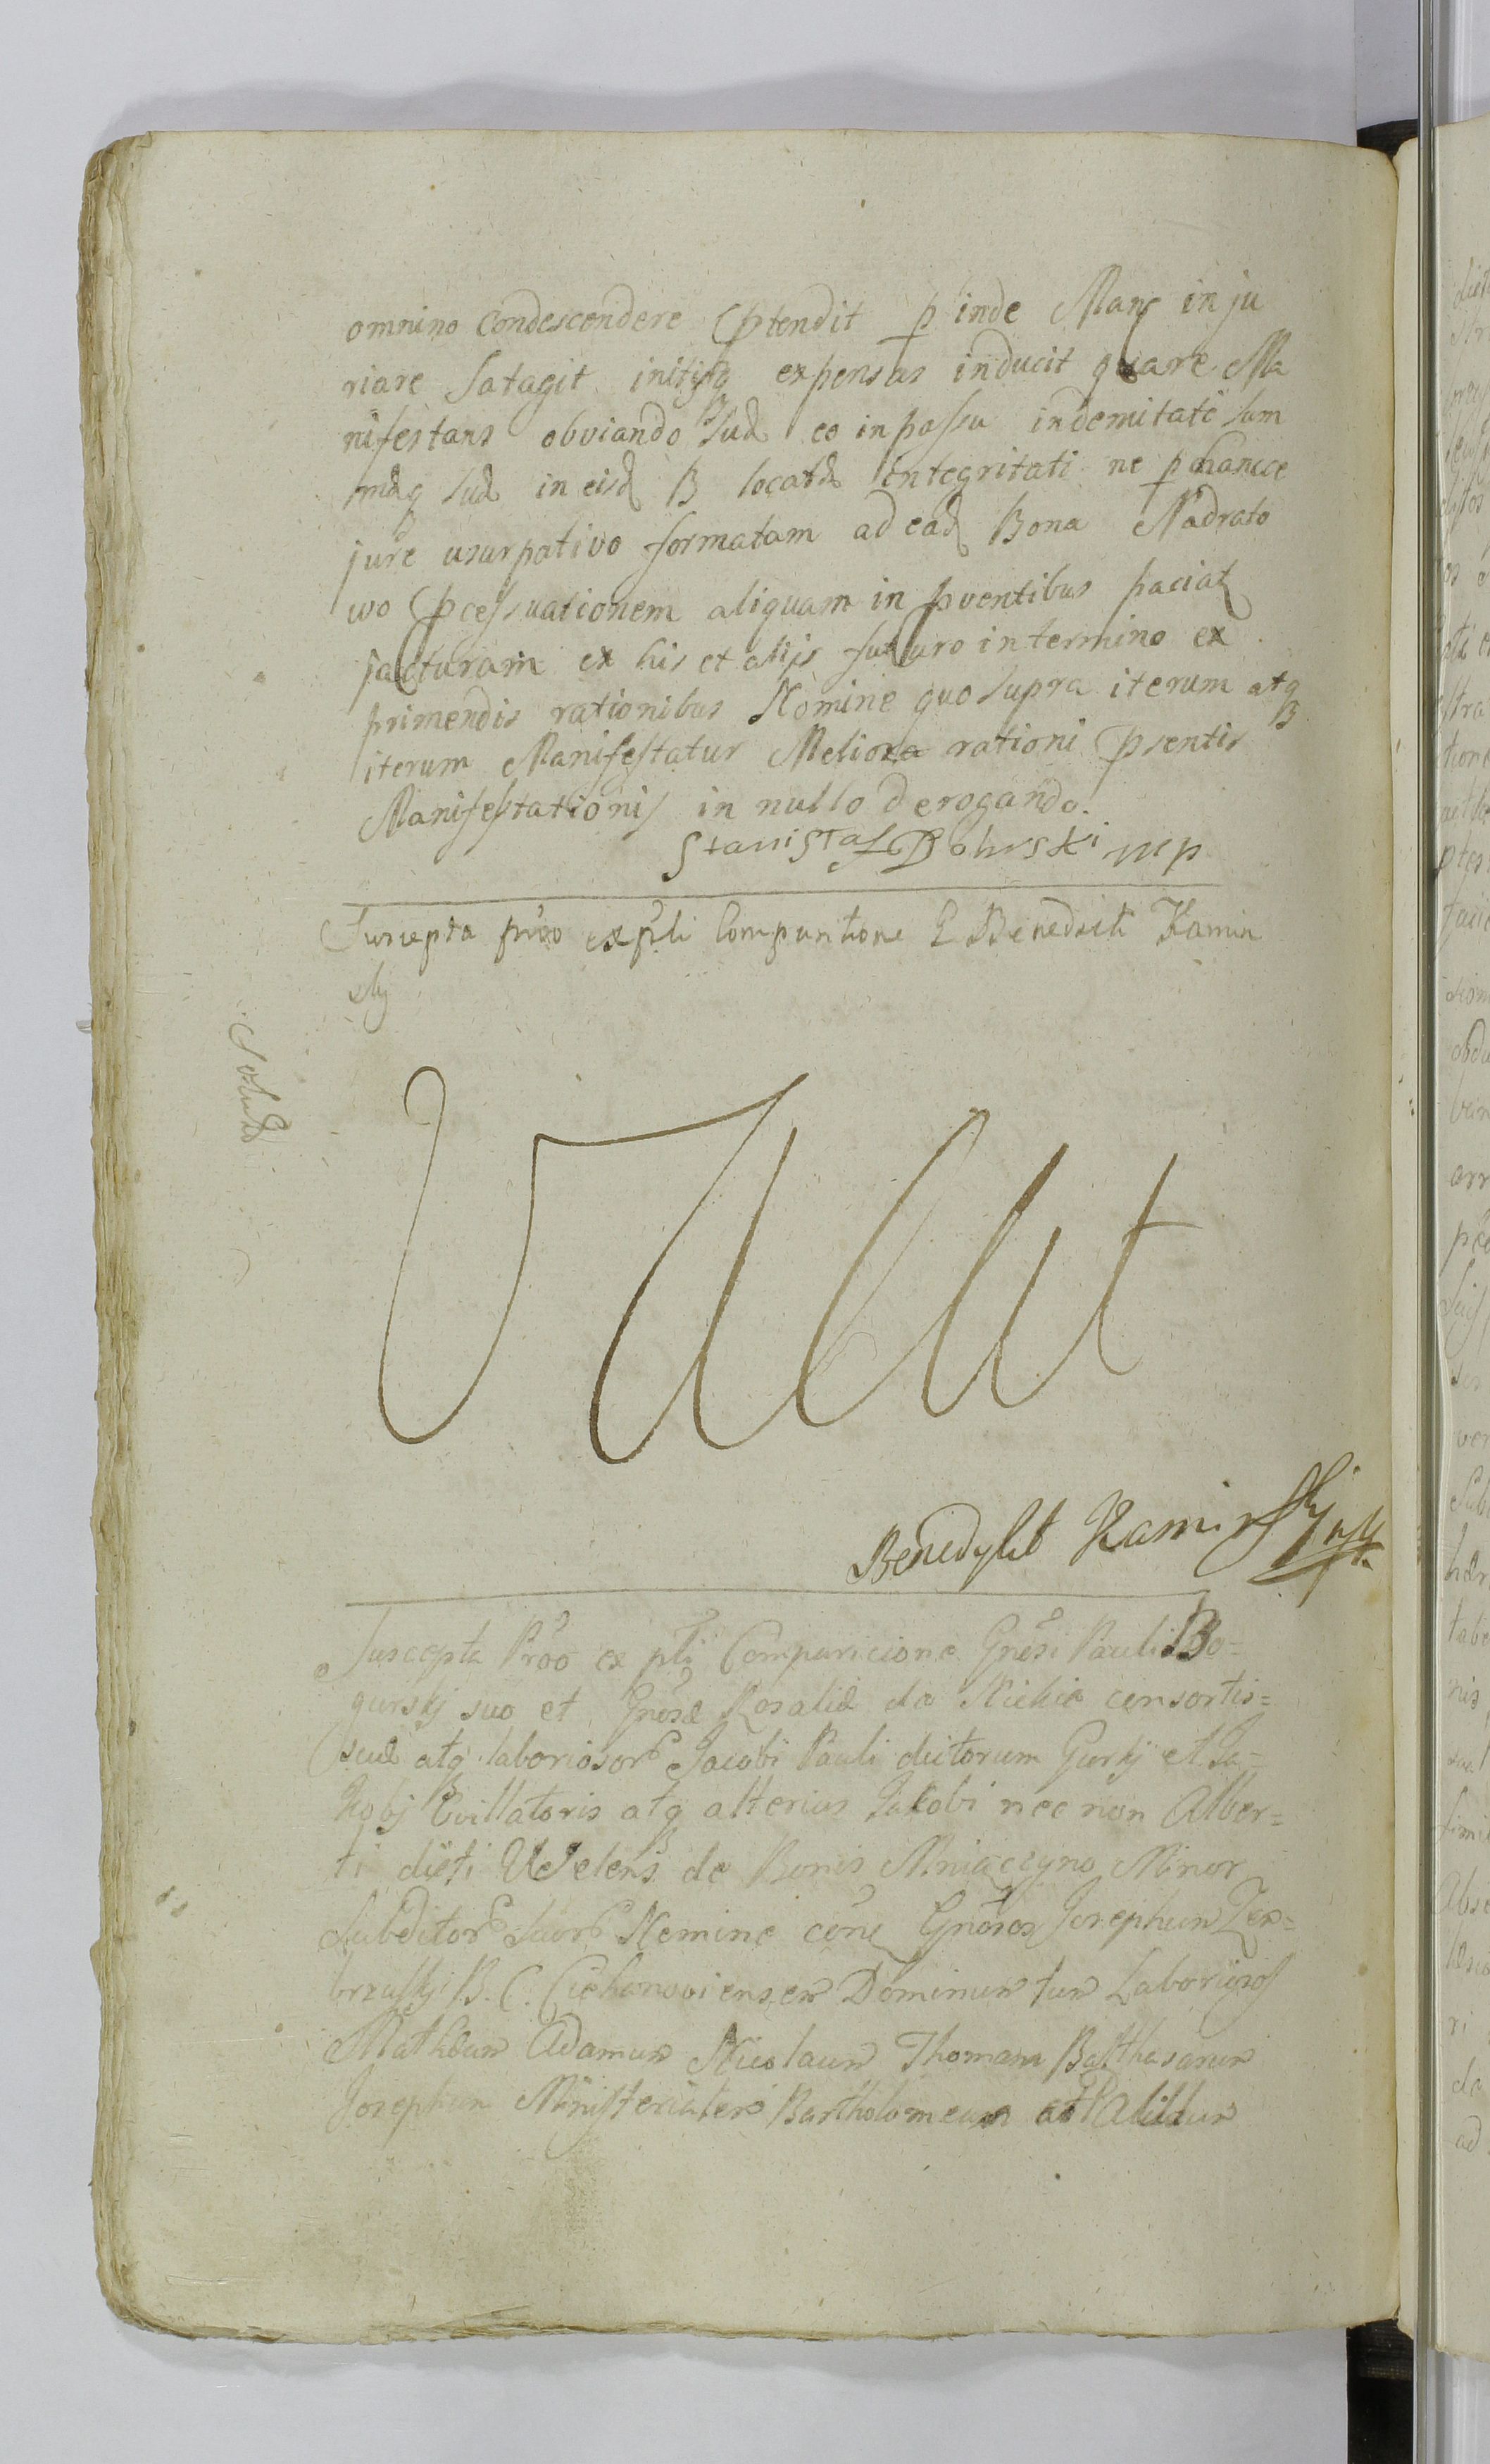 omnino condescendere ptendit p inde Mans inju
riare satagit initisq expensas inducit quare Ma
nifestans obviando suæ eo in passu indemnitati sum
mæq suæ in eisd B locatæ integritati ne p hancce
jure usurpativo formatam ad ead Bona Nadrato
wo pcessuationem aliquam in pventibus paciat
jacturam ex his et alijs futuro in termino ex
primendis rationibus Nomine quo supra iterum atq
iterum Manifestatur Meliora rationi psentis
Manifestationis in nullo derogando.
Stanisław Bohrski mp
Suscepta prōo ex pli Comparitione G Benedicti Kamin
skij
Solutæ
Vacat
Benedykt Kaminskij
Suscepta Prōo ex pli Comparicione Gnosi Pauli Bo=
gurskj suo et Gnosæ Rosaliæ de consortis=
suæ atq laboriosor Jacobi Pauli dictorum Gurskj et Ja=
kobj Bvillatoris atq alterius Jakobi nec non Alber=
ti dicti de Bonis Mniaczyno Minor
Subditor suor Nomine cone Gnosos Josephum Zem=
brzuskj B. C. Ciehanoviensem Dominum tum Laboriosos
Mathæum Adamum Nicolaum Thomam Balthasarum
Josephum Ministerialem Bartholomeum